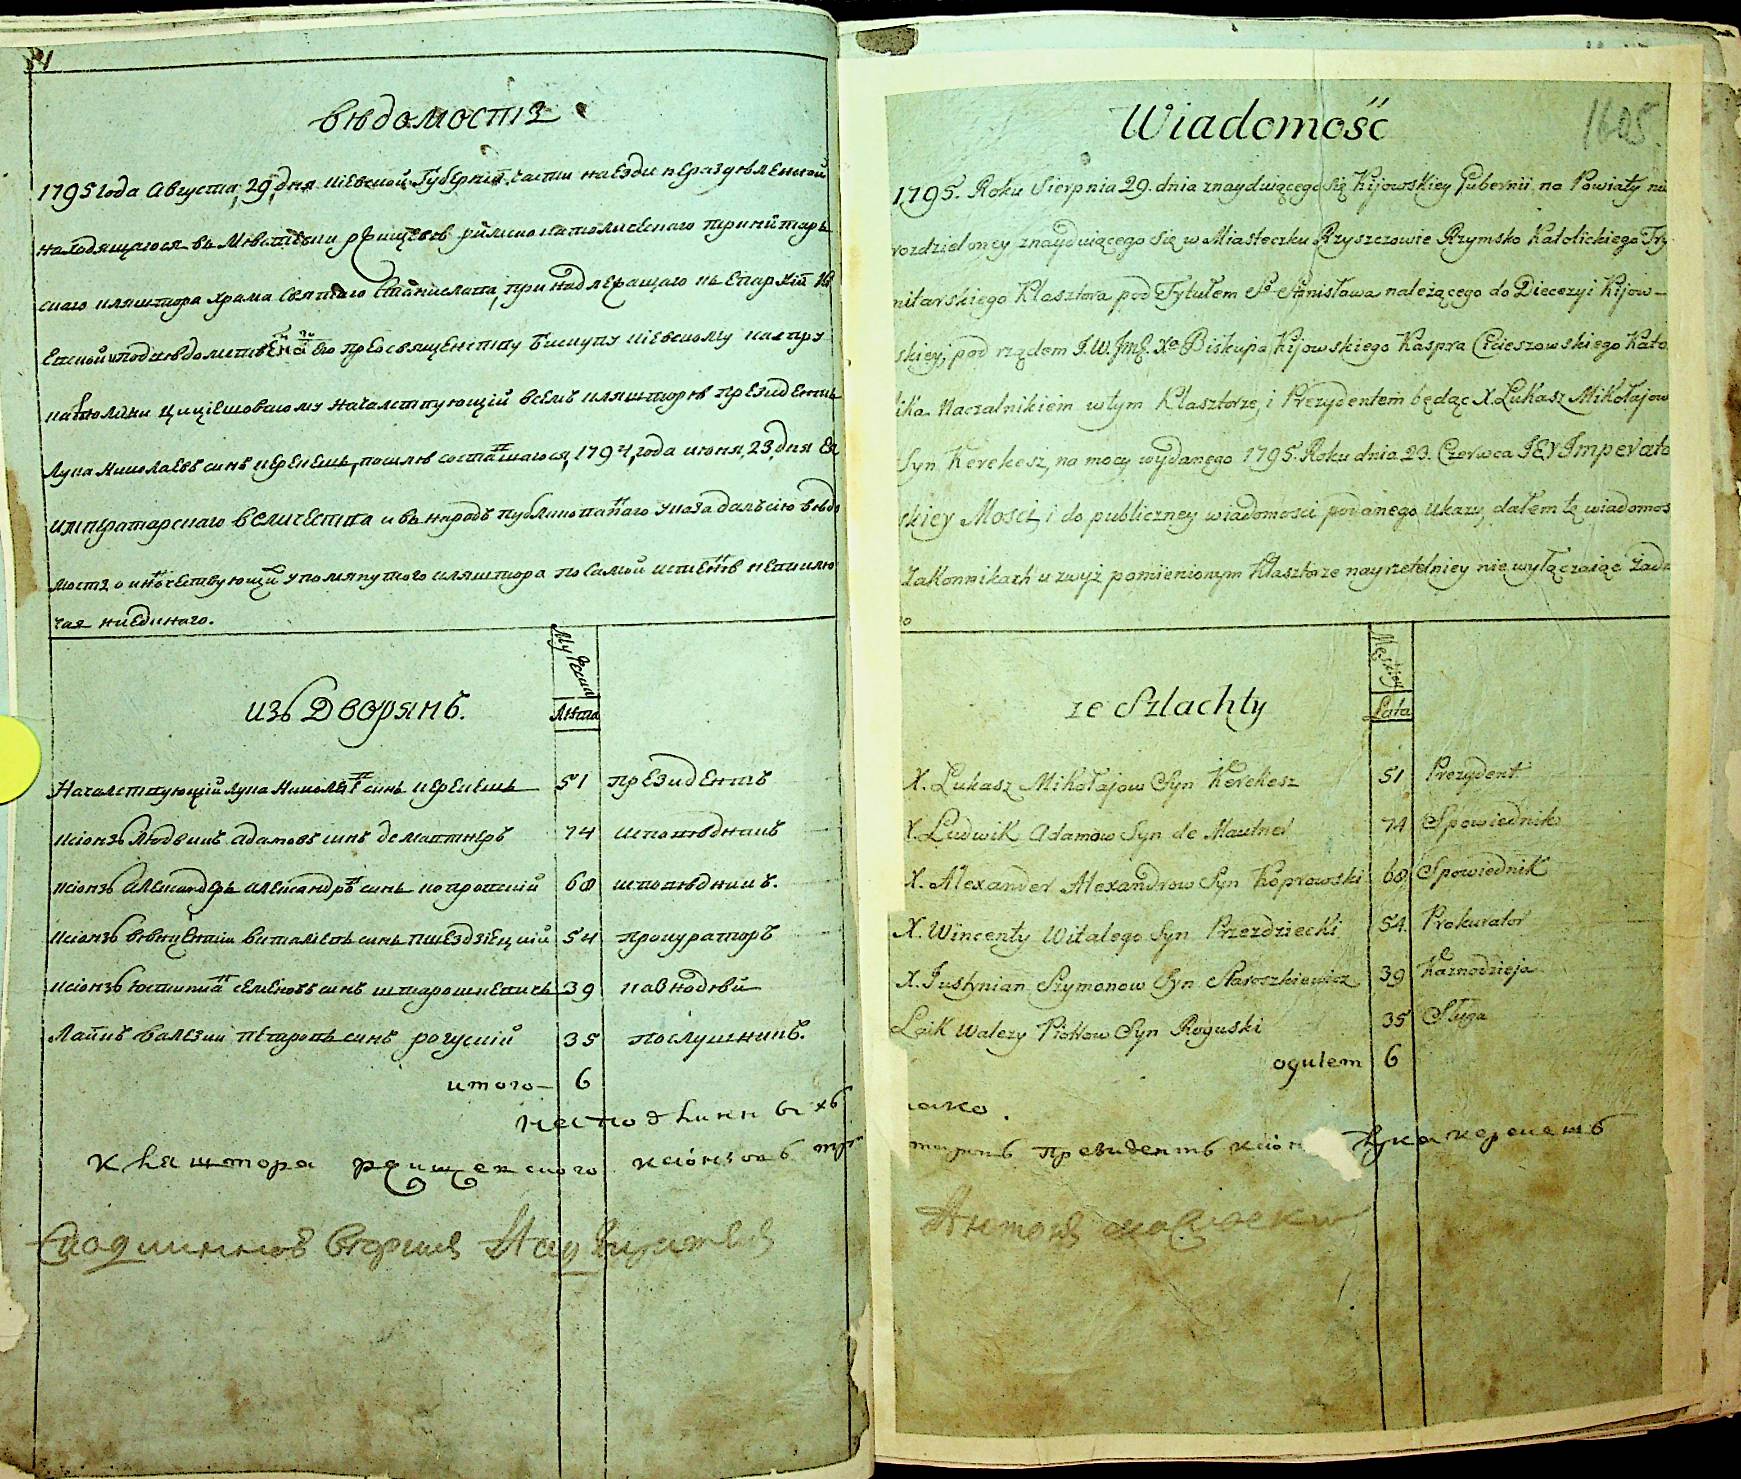 вѣдомость
1795 года августа, 29, дня кіевской губерніи части на езди неразделенной
находящагося въ местечки ржищевѣ римско католиского тринитар
скаго кляштора храма святаго станислава, принадлежащаго къ епархіи кі
евской подведомственной его преосвященству бискупу кіевскому каспру
католики цицішовскому началствующій всемъ кляшторѣ президентъ
лука николаевъ синъ керекешь, после состоявшагося, 1794, года июня, 23, дня ея
императарскаго величества и въ народъ публикованаго указа далъ сію вѣдо
мость о иночествующій упомянутого кляштора по самой истенѣ неисклю
чая ниединаго.
Мужеска
Лѣта
изъ Дворянъ.
Началствующій лука николаевъ синь керекешь 51 президентъ
ксіонзъ людвикъ адамовъ синъ де маутнеръ 74 исповѣдникъ
ксіонзъ александеръ александровъ синь копровскій 68 исповѣдникъ.
ксіонзъ винцентіи виталевъ синь пшездзіецкій 54 прокураторъ
ксіонзъ юстиниа семеновъ синъ старошкевичь 39 казнодѣй
Лаикъ валезіи петаровъ синъ рогускій 35 послушникъ.
итого 6
клаштора ржищевского ксіонзовъ
Wiadomość
1605
1795. Roku Sierpnia 29. dnia znayduiącego się Kijowskiey Gubernii na Powiaty nie
rozdzieloney znayduiącego się w Miasteczku Rzyszczowie Rzymsko Katolickiego Try
nitarskiego Klasztora pod Tytułem So Stanisława należącego do Diecezyi Kijow-
skiey, pod rządem J.W. Jmć Xa Biskupa Kijowskiego Kaspra Cieciszowskiego Kato
lika Naczalnikiem w tym Klasztorze, i Prezydentem będąc X. Lukasz Mikołajow
Syn Kerekesz, na mocy wydanego 1795. Roku dnia 23. Czerwca JEY Imperato
rskiey Mosci, i do publiczney wiadomosci podanego ukazu, dałem tę wiadomos
Zakonnikach w zwyż pomienionym Klasztorze nayrzetelniey nie wyłączaiąc żadn
Męskiey
Lata
ze Szlachty
X. Lukasz Mikołajow Syn Kerekesz 51 Prezydent
X. Ludwik Adamow Syn de Mautner 74 Spowiednik
X. Alexander Alexandrow Syn Koprowski 68 Spowiednik
X. Wincenty Witalego Syn Przezdziecki 54 Prokurator
X. Justynian Szymonow Syn Staroszkiewicz 39 Kaznodzieja
Laik Walezy Piotrow Syn Roguski 35 Sługa
ogulem 6
президентъ лука керекешъ